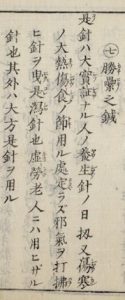 ㊆勝縈之鍼
是針ハ大實証ナル人ノ養生針ノ日扨又傷寒
ノ大熱傷食ノ節用ル處定ラズ邪氣ヲ打拂
ヒ針ヲ曳是瀉針也虚勞老人ニハ用ヒザル
針也其外ハ大方是針ヲ用ル